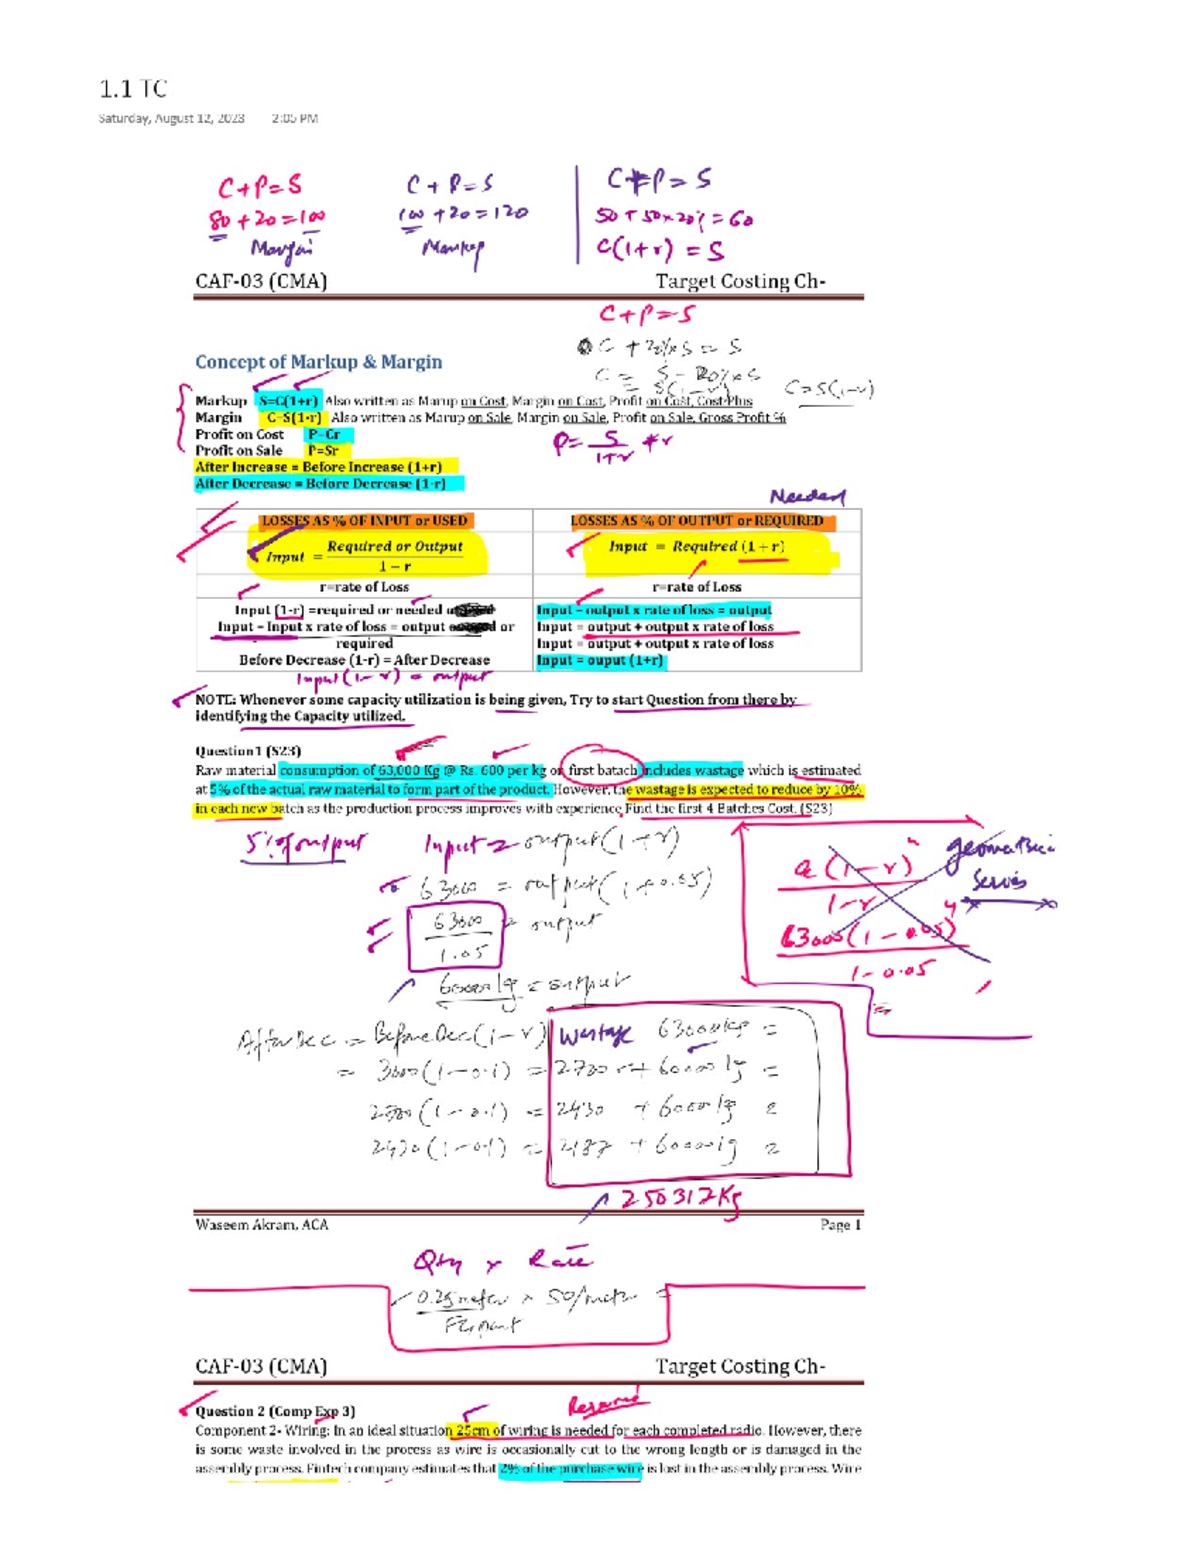 1.1 TC
Saturday, August 12, 2023 2:05 PM
C+P=S
80+20=100
Margin
C+P=S
100+20=120
Markup
C+P=S
50+50x20%=60
C(1+r) = S
CAF-03 (CMA) Target Costing Ch-
C+P=S
C + 20%xS = S
C = S - 20%xS
= S(1-r)
C=S(1-r)
Concept of Markup & Margin
Markup S=C(1+r) Also written as Marup on Cost, Margin on Cost, Profit on Cost, Cost-Plus
Margin C=S(1-r) Also written as Marup on Sale, Margin on Sale, Profit on Sale, Gross Profit %
Profit on Cost P=Cr
Profit on Sale P=Sr
P= S/1+r *r
After Increase = Before Increase (1+r)
After Decrease = Before Decrease (1-r)
Needed
LOSSES AS % OF INPUT or USED LOSSES AS % OF OUTPUT or REQUIRED
Input = Required or Output / 1 − r Input = Required (1 + r)
r=rate of Loss r=rate of Loss
Input (1-r) =required or needed
Input – Input x rate of loss = output or
required
Before Decrease (1-r) = After Decrease
Input – output x rate of loss = output
Input = output + output x rate of loss
Input = output + output x rate of loss
Input = ouput (1+r)
Input(1-r) = output
NOTE: Whenever some capacity utilization is being given, Try to start Question from there by
identifying the Capacity utilized.
Question1 (S23)
Raw material consumption of 63,000 Kg @ Rs. 600 per kg on first batach includes wastage which is estimated
at 5% of the actual raw material to form part of the product. However, the wastage is expected to reduce by 10%
in each new batch as the production process improves with experience. Find the first 4 Batches Cost. (S23)
5% of output
Input = output(1+r)
63000 = output(1+0.05)
63000
1.05
= output
60000kg = output
a(1-r)ⁿ
1-r
geometric
Series
63000(1-0.05)⁴
1-0.05
=
After Dec = Before Dec(1-r) Wastage 63000kg =
= 3000(1-0.1) = 2700 + 60000kg =
2700(1-0.1) = 2430 + 60000kg =
2430(1-0.1) = 2187 + 60000kg =
250317Kg
Waseem Akram, ACA Page 1
Qty x Rate
0.25meter x 50/meter =
CAF-03 (CMA) Target Costing Ch-
Required
Question 2 (Comp Exp 3)
Component 2- Wiring: In an ideal situation 25cm of wiring is needed for each completed radio. However, there
is some waste involved in the process as wire is occasionally cut to the wrong length or is damaged in the
assembly process. Fintech company estimates that 2% of the purchase wire is lost in the assembly process. Wire